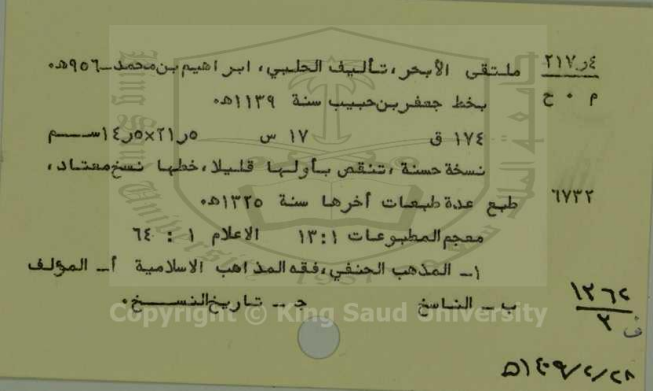 ٢١٧٫٤ ملتقى الأبحر، تأليف الحلبي، ابراهيم بن محمد ـ ٩٥٦هـ.
م ٠ ح بخط جعفر بن حبيب سنة ١١٣٩هـ.
١٧٤ ق ١٧ س ٢١٫٥×١٤٫٥ سم
نسخة حسنة، تنقص بأولها قليلا، خطها نسخ معتاد،
٦٧٣٢ طبع عدة طبعات أخرها سنة ١٣٢٥هـ.
معجم المطبوعات ١:١٣ الاعلام ١ : ٦٤
١ـ المذهب الحنفي، فقه المذاهب الاسلامية أـ المؤلف
ب ـ الناسخ جـ ـ تاريخ النسخ.
ف ١٢٦٤/٢
١٤٠٩/٢/٢٨هـ
Copyright © King Saud University